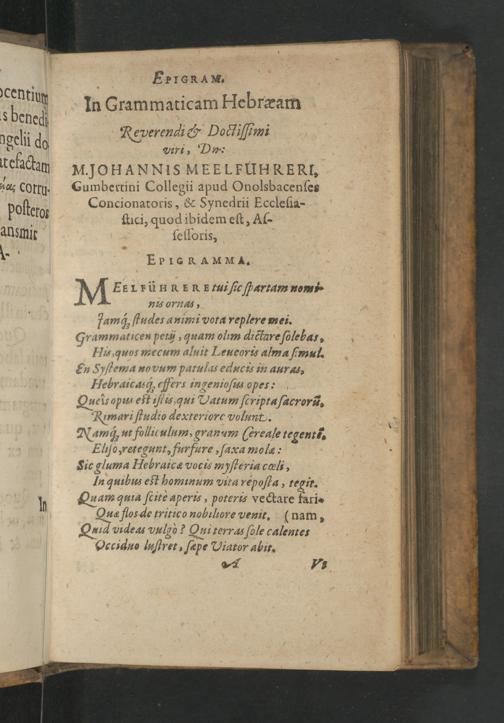 ocentium
s benedi-
ngelii do-
atefactam
corru-
posteros
ansmit
A-
In
EPIGRAM.
In Grammaticam Hebræam
Reverendi & Doctissimi
viri, Dn:
M. JOHANNIS MEELFÜHRERI,
Gumbertini Collegii apud Onolsbacenses
Concionatoris, & Synedrii Ecclesia-
stici, quod ibidem est, As-
sessoris,
EPIGRAMMA.
MEELFÜHRERE tui sic spartam nomi-
nis ornas,
Jamq́, studes animi vota replere mei.
Grammaticen petij, quam olim dictare solebas,
His, quos mecum aluit Leucoris alma simul.
En Systema novum patulas educis in auras,
Hebraicasq́, effers ingeniosus opes:
Queîs opus est istis, qui Vatum scripta sacrorũ,
Rimari studio dexteriore volunt.
Namq́, ut folliculum, granum Cereale tegentẽ,
Eliso, retegunt, furfure, saxa molæ:
Sic gluma Hebraicæ vocis mysteria cœli,
In quibus est hominum vita reposta, tegit.
Quam quia scitè aperis, poteris vectare fari-
Qua flos de tritico nobiliore venit. (nam,
Quid videas vulgò? Qui terras sole calentes
Occiduo lustret, sæpe Viator abit.
A Vt